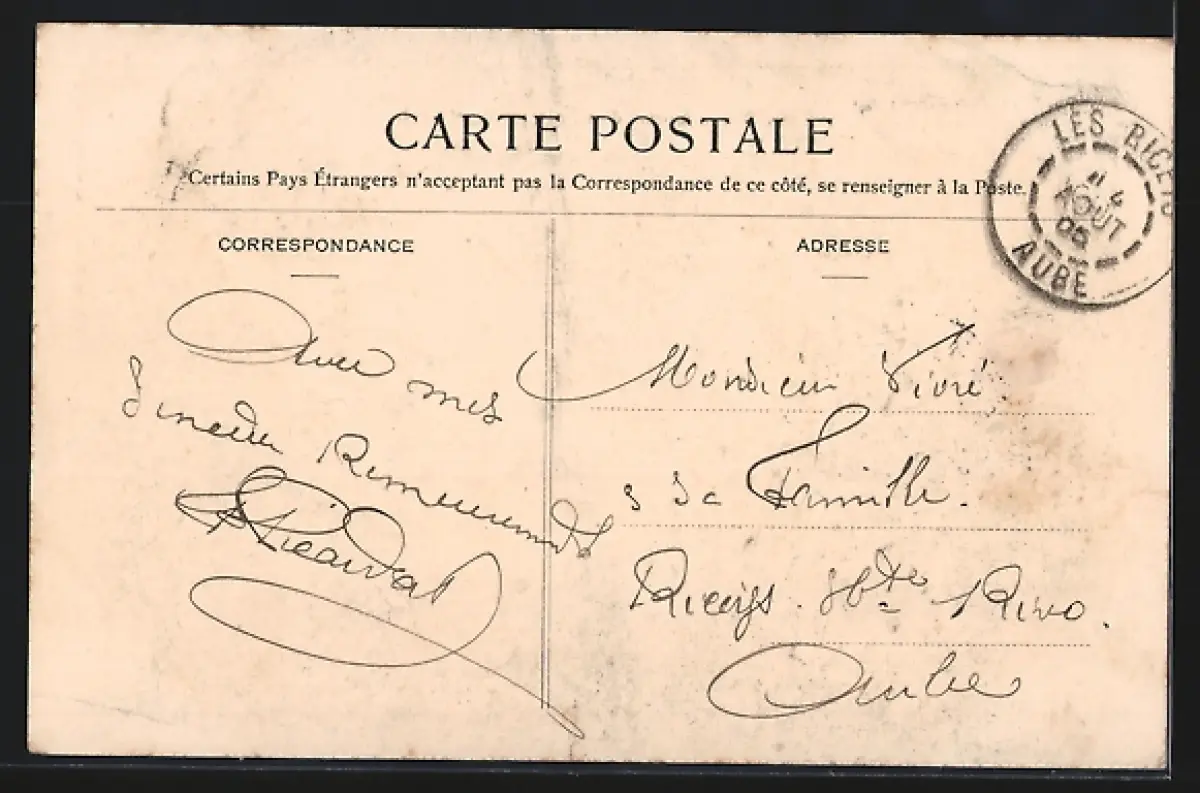 CARTE POSTALE
Certains Pays Étrangers n'acceptant pas la Correspondance de ce côté, se renseigner à la Poste.
CORRESPONDANCE
Avec mes
Sincères Remerciements
ADRESSE
Monsieur Vivré
& Sa Famille.
Riceys. Hte Rive.
Aube
LES RICEYS
4
AOUT
05
AUBE